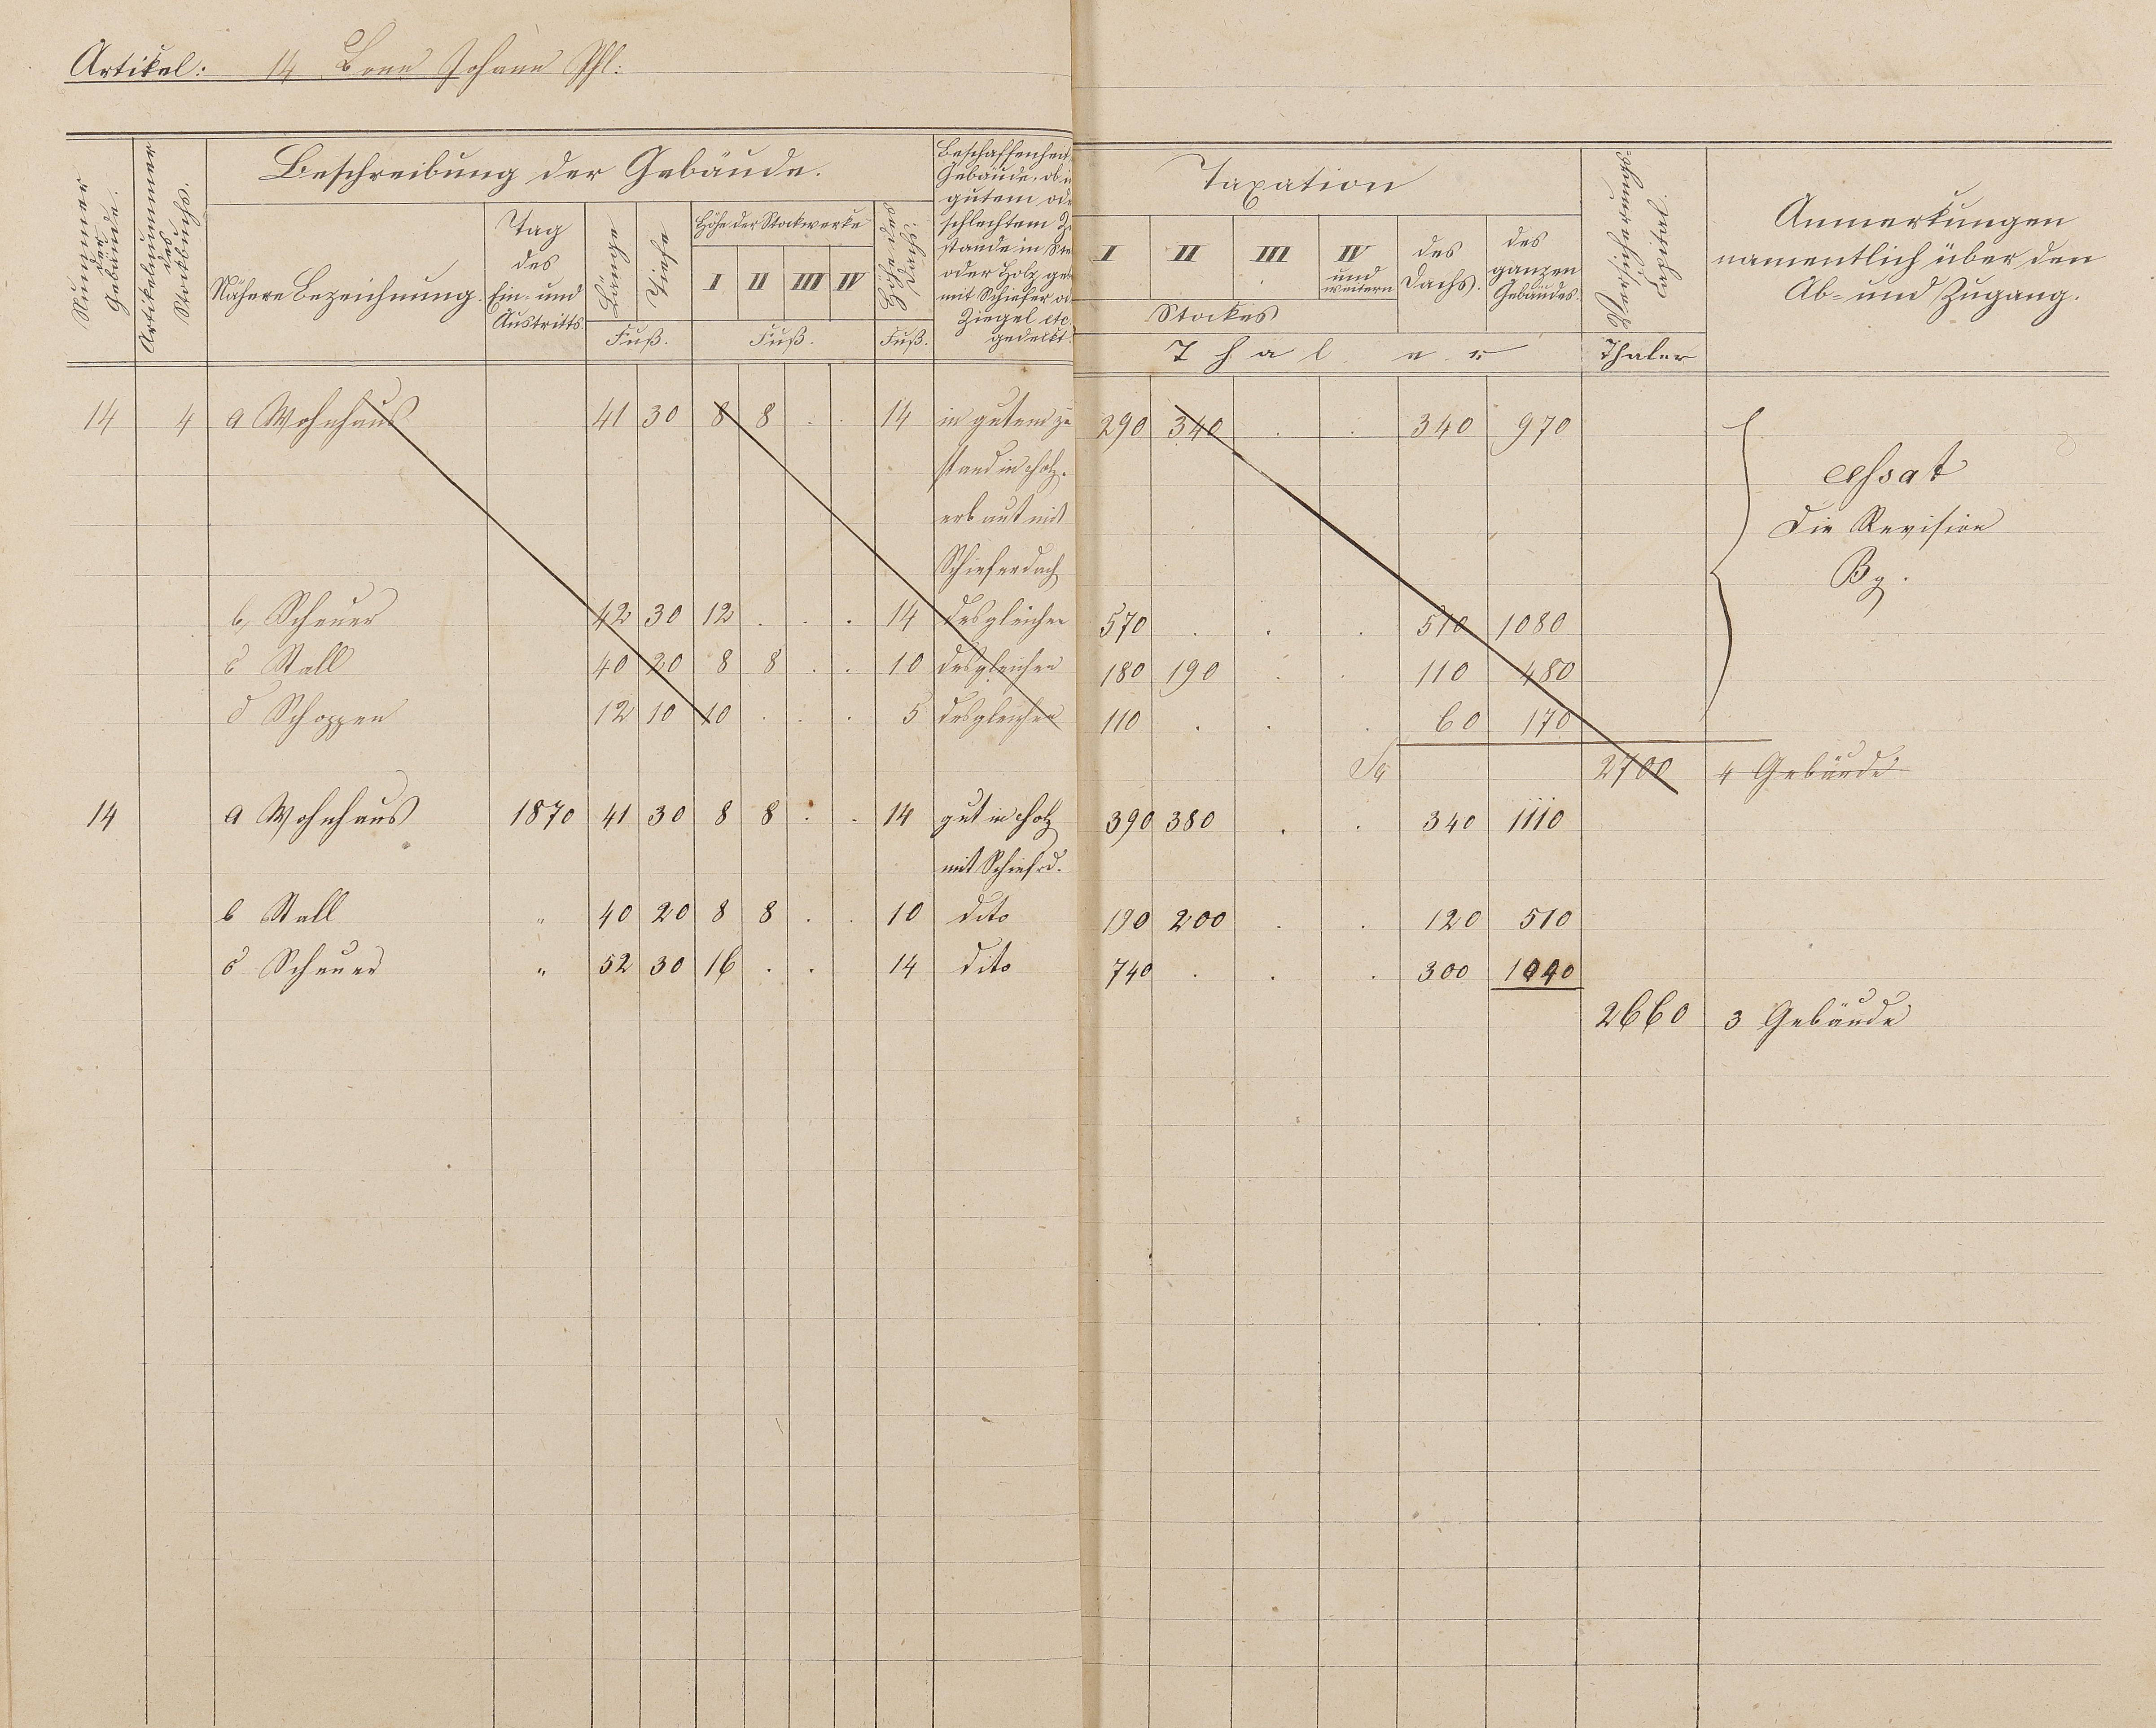 Artikel: 14 Bonn Johann Phl:
Nummer der Gebäude.
Artikelnummer des Stockbuchs.
Beschreibung der Gebäude.
Nähere Bezeichnung.
Tag des Ein- und Austritts
Länge
Tiefe
Fuß.
Höhe der Stockwerke
I II III IV
Fuß.
Höhe des Dachs.
Fuß.
Beschaffenheit
Gebäude, ob i
gutem ode
schlechtem Z
stande in Ste
oder Holz geb
mit Schiefer od
Ziegel etc
gedeckt.
Taxation
I II III IV und weitern
Stockes
des Dachs.
des ganzen Gebäudes.
Thaler
Versicherungs Capital.
Thaler
Anmerkungen
namentlich über den
Ab- und Zugang.
14 4 a Wohnhaus 41 30 8 8 . . 14 in gutem Zu 290 340 . . 340 970
stand in Holz
erbaut mit
Schieferdach
cessat
Die Revision
Bg.
b, Scheuer 42 30 12 . . . 14 desgleichen 570 . . . 510 1080
c Stall 40 20 8 8 . . 10 desgleichen 180 190 . . 110 480
d Schoppen 12 10 10 . . . 5 desgleichen 110 . . . 60 170
Sa 2700 4 Gebäude
14 a Wohnhaus 1870 41 30 8 8 . . 14 gut in Holz 390 380 . . 340 1110
mit Schiefrd.
b Stall " 40 20 8 8 . . 10 dito 190 200 . . 120 510
c Scheuer " 52 30 16 . . 14 dito 740 . . . 300 1040
2660 3 Gebäude